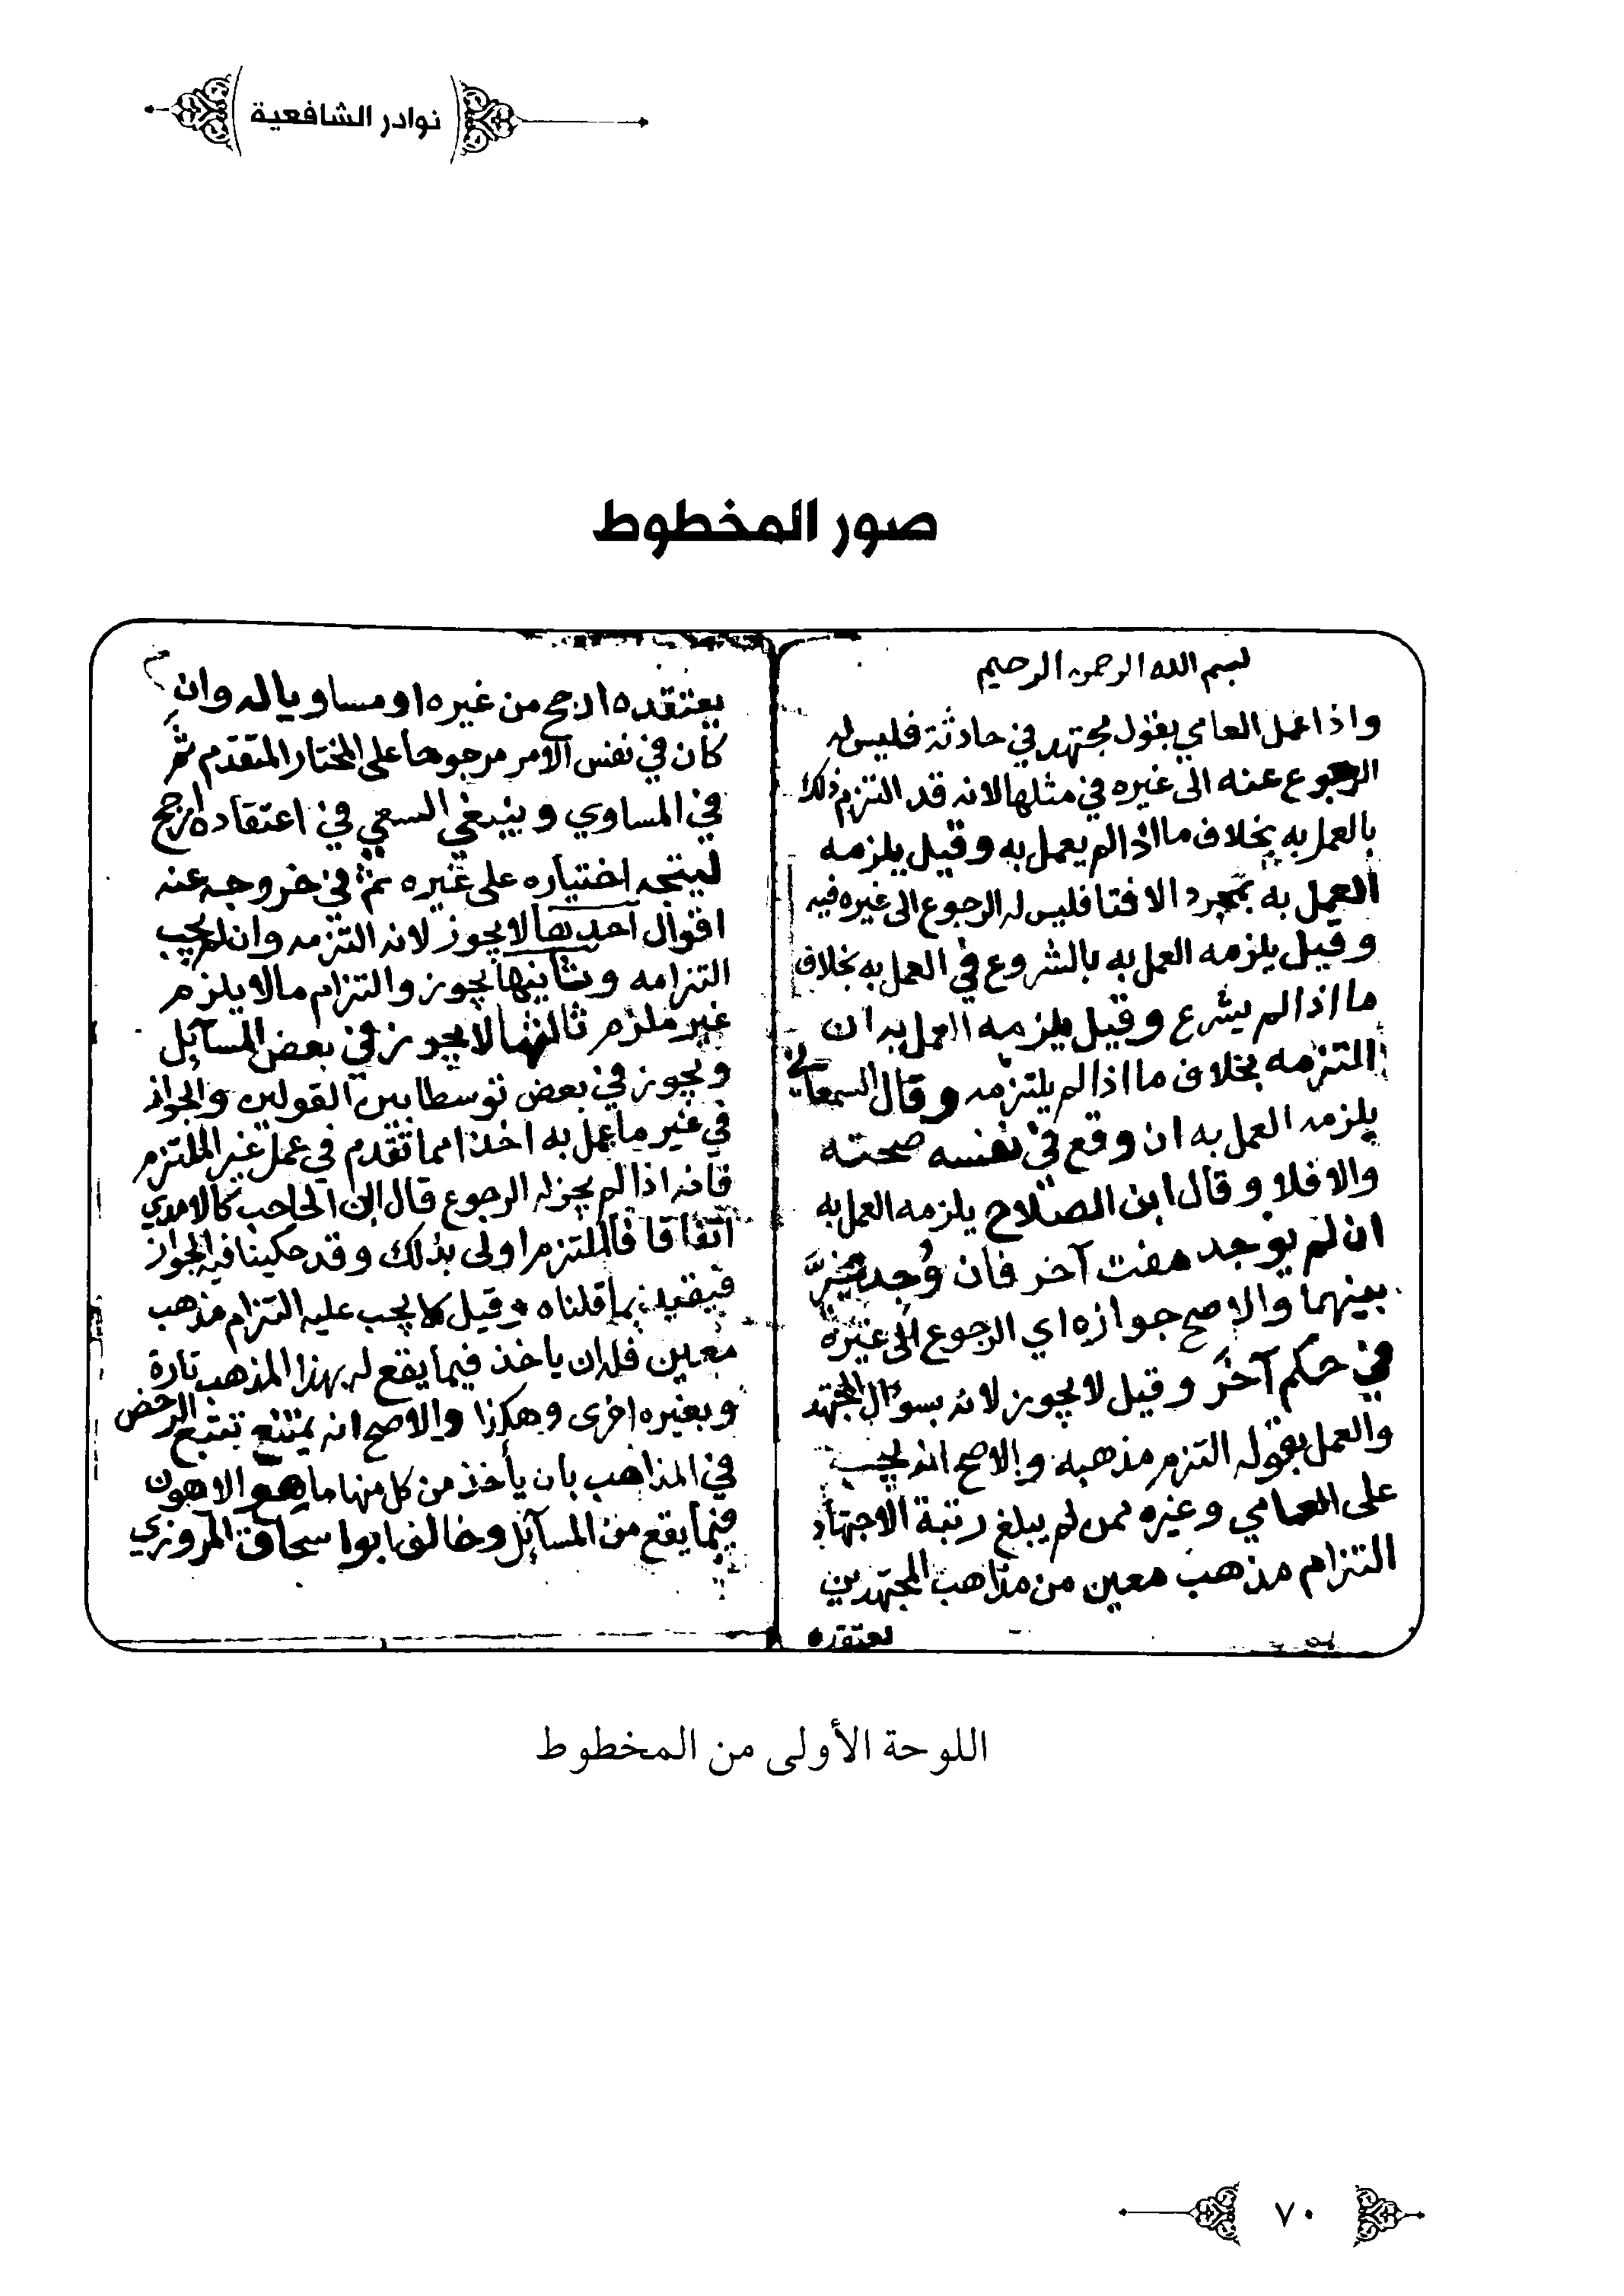 نوادر الشافعية
صور المخطوط
بسم الله الرحمن الرحيم
واذا عمل العامي بقول مجتهد في حادثة فليس له
الرجوع عنه الى غيره في مثلها لانه قد التزم ذلك
بالعمل به بخلاف ما اذا لم يعمل به وقيل يلزمه
العمل به بمجرد الافتا فليس له الرجوع الى غيره فيه
وقيل يلزمه العمل به بالشروع في العمل به بخلاف
ما اذا لم يشرع وقيل يلزمه العمل به ان
التزمه بخلاف ما اذا لم يلتزمه وقال السمعاني
يلزمه العمل به ان وقع في نفسه صحته
والا فلا وقال ابن الصلاح يلزمه العمل به
ان لم يوجد مفت آخر فان وُجد تخيرَّ
بينهما والاصح جوازه اي الرجوع الى غيره
في حكم آخَر وقيل لا يجوز لانه بسوال المجتهد
والعمل بقوله التزم مذهبه والاصح انه يجب
على العامي وغيره ممن لم يبلغ رتبة الاجتهاد
التزام مذهب معين من مذاهب المجتهدين
يعتقده
يعتقده ارجح من غيره او مساويا له وان
كان في نفس الامر مرجوحا على المختار المتقدم ثم
في المساوي وينبغي السعي في اعتقاده ارجح
ليتجه اختياره على غيره ثم في خروجه عنه
اقوال احدها لا يجوز لانه التزمه وان لم يجب
التزامه وثانيها يجوز والتزام ما لا يلزم
غير ملزم ثالثها لا يجوز في بعض المسآئل
ويجوز في بعض توسطا بين القولين والجواز
في غير ما عمل به اخذا مما تقدم في عمل غير الملتزم
فانه اذا لم يجز له الرجوع قال ابن الحاجب كالامدي
اتفاقا فالملتزم اولى بذلك وقد حكينا فيه الجواز
فيقيد بما قلناه وقيل لا يجب عليه التزام مذهب
معين فله ان ياخذ فيما يقع له بهذا المذهب تارة
وبغيره اخرى وهكذا والاصح انه يمتنع تتبع الرخص
في المذاهب بان يأخذ من كل منها ما هو الاهون
فيما يقع من المسآئل وخالف ابوا سحاق المروزي
اللوحة الأولى من المخطوط
٧٠